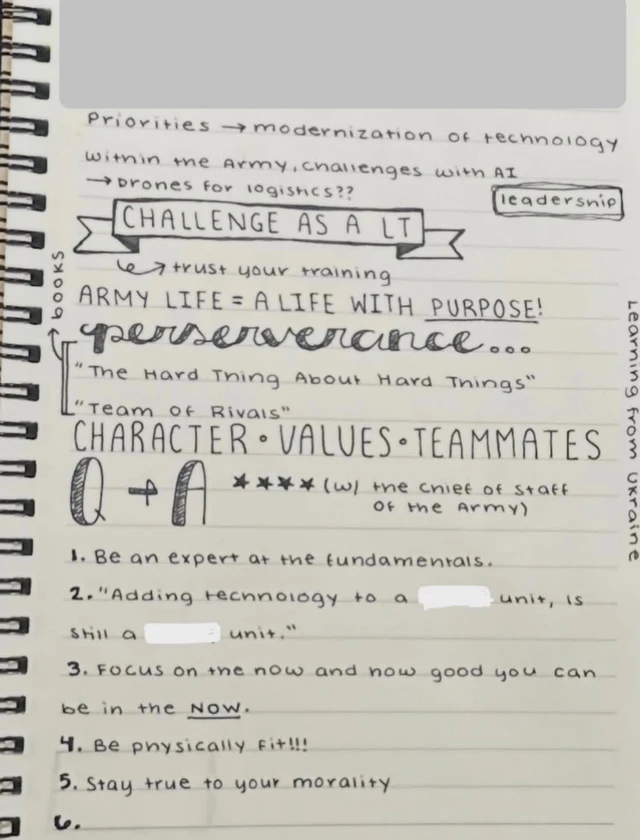 Priorities → modernization of technology
within the Army, challenges with AI
→ Drones for logistics??
leadership
CHALLENGE AS A LT
↳→ trust your training
ARMY LIFE = A LIFE WITH PURPOSE!
books
perserverance...
"The Hard Thing About Hard Things"
"Team of Rivals"
Learning from Ukraine
CHARACTER • VALUES • TEAMMATES
Q + A ★★★★ (w/ the chief of staff
of the Army)
1. Be an expert at the fundamentals.
2. "Adding technology to a unit, is
still a unit."
3. Focus on the now and how good you can
be in the NOW.
4. Be physically fit!!!
5. Stay true to your morality
6.